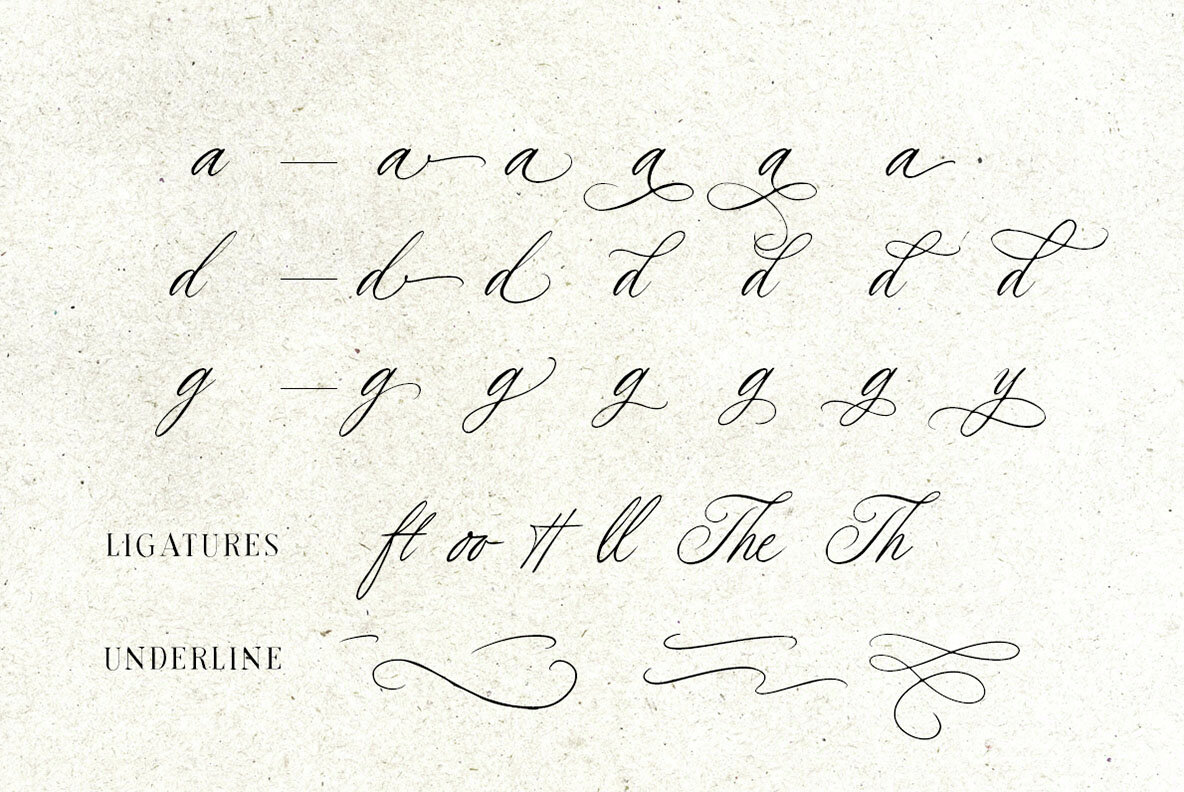 a — a a a a a
d — d d d d d d
g — g g g g g y
LIGATURES ft oo tt ll The Th
UNDERLINE